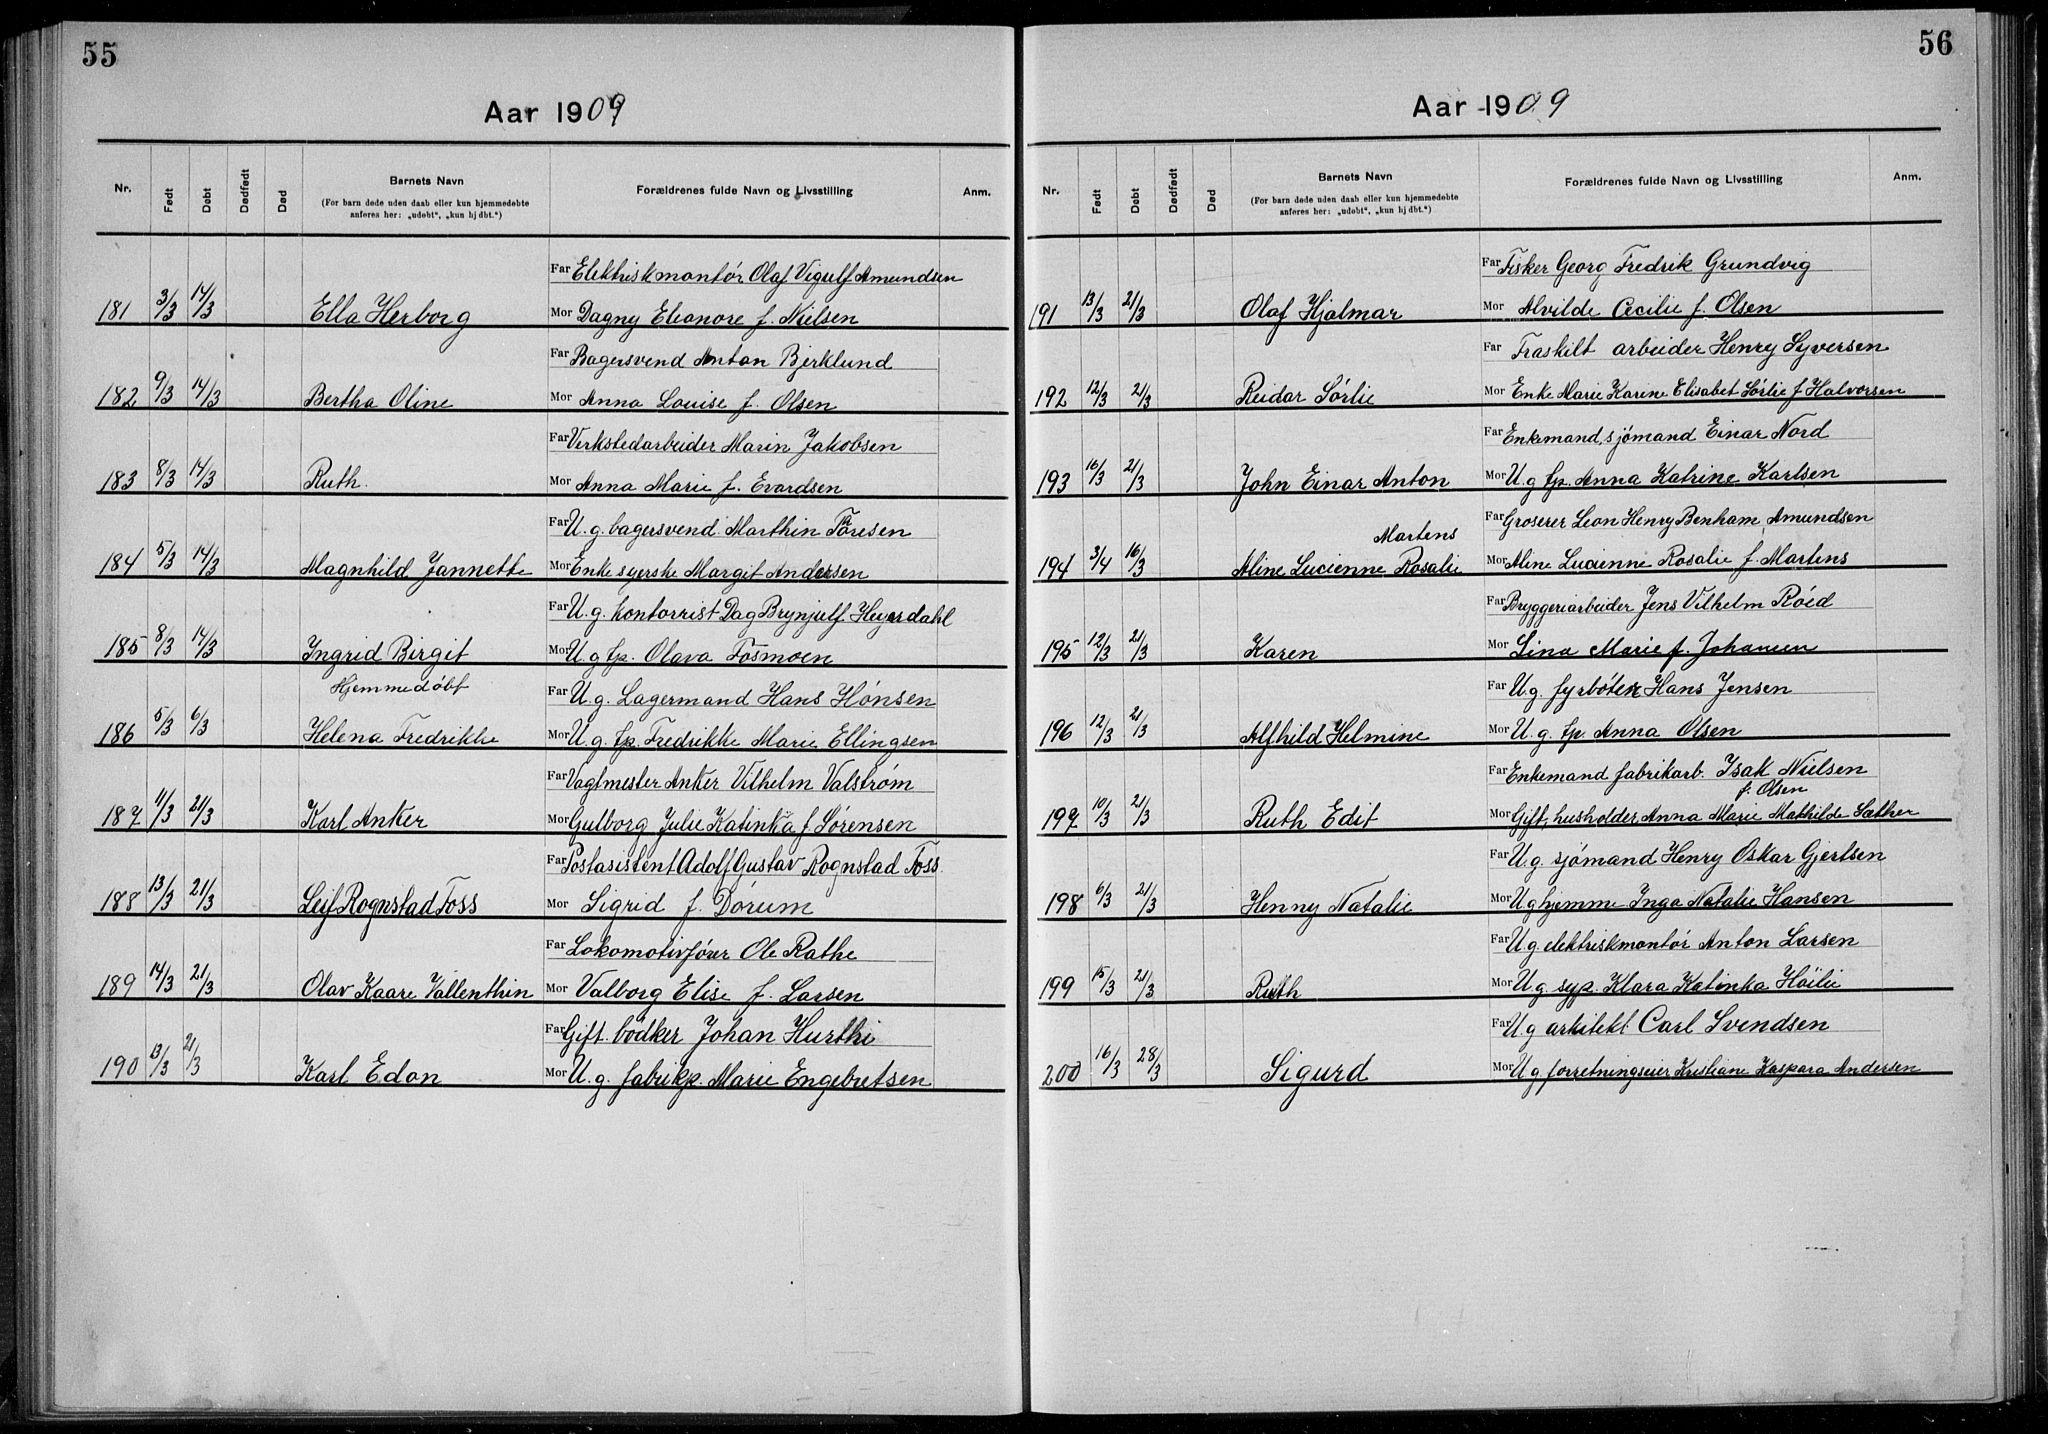 55
Aar 1909
Nr. Født Døbt Dødfødt Død Barnets Navn Forældrenes fulde Navn og Livsstilling Anm.
(For barn døde uden daab eller kun hjemmedøbte
anføres her: „udøbt“, „kun hj dbt.“)
Far Elektriskmontör Olaf Vigulf Amundsen
181 3/3 14/3 Ella Herborg Mor Dagny Eleonore f. Nielsen
Far Bagersvend Anton Bjerklund
182 9/3 14/3 Bertha Oline Mor Anna Louise f. Olsen
Far Verkstedarbeider Marin Jakobsen
183 8/3 14/3 Ruth. Mor Anna Marie f. Evardsen
Far U. g. bagersvend Marthin Toresen
184 5/3 14/3 Magnhild Jannette Mor Enke syerske Margit Andersen
Far U. g. kontorrist Dag Brynjulf Heyerdahl
185 8/3 14/3 Ingrid Birgit Mor U. g. fp. Olava Fosmoen
Hjemmedöbt Far U. g. Lagermand Hans Hönsen
186 5/3 6/3 Helena Fredrikke Mor U. g. fp. Fredrikke Marie Ellingsen
Far Vagtmester Anker Vilhelm Valström
187 11/3 21/3 Karl Anker Mor Gulborg Julie Katinka f Sörensen
Far Postasistent Adolf Gustav Rognstad Foss.
188 13/3 21/3 Leif Rognstad Foss Mor Sigrid f. Dörum
Far Lokomotivförer Ole Rathe
189 14/3 21/3 Olav Kaare Vallenthin Mor Valborg Elise f. Larsen
Far Gift. bödker Johan Hurthi
190 13/3 21/3 Karl Edon Mor U. g. fabrikp. Marie Engebretsen
56
Aar 1909
Nr. Født Døbt Dødfødt Død Barnets Navn Forældrenes fulde Navn og Livsstilling Anm.
(For barn døde uden daab eller kun hjemmedøbte
anføres her: „udøbt“, „kun hj dbt.“)
Far Fisker Georg Fredrik Grundvig
191 13/3 21/3 Olaf Hjalmar Mor Alvilde Cecilie f. Olsen
Far Fraskilt arbeider Henry Syversen
192 12/3 21/3 Reidar Sörlie Mor Enke Marie Karine Elisabet Sörlie f Halvorsen
Far Enkemand, sjömand Einar Nord
193 16/3 21/3 John Einar Anton Mor U. g fp. Anna Katrine Karlsen
Martens Far Groserer Leon Henry Benham Amundsen
194 3/4 16/3 Aline Lucienne Rosalie Mor Aline Lucienne Rosalie f. Martens
Far Bryggeriarbeider Jens Vilhelm Röed
195 12/3 21/3 Karen Mor Lina Marie f. Johansen
Far U. g. fyrböter Hans Jensen
196 12/3 21/3 Alfhild Helmine Mor U. g. fp. Anna Olsen
Far Enkemand fabrikarb. Isak Nielsen
f. Olsen
197 10/3 21/3 Ruth Edit Mor Gift, husholder Anna Marie Mathilde Sæther
Far U. g. sjömand Henry Oskar Gjertsen
198 6/3 21/3 Henny Natalie Mor U. g hjemme Inga Natalie Hansen
Far U. g. elektriskmontör Anton Larsen
199 15/3 21/3 Ruth Mor U. g. syp. Klara Katinka Höilie
Far U. g arkitekt Carl Svendsen
200 16/3 28/3 Sigurd Mor U. g forretningseier Kristiane Kaspara Andersen